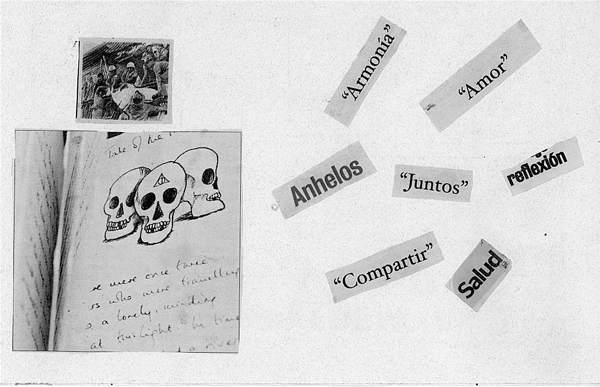 Tale of the
re were once three
rs who were travelling
a lonely, winding
at twilight. In time
a river
“Armonía”
“Amor”
Anhelos
“Juntos”
reflexión
“Compartir”
Salud